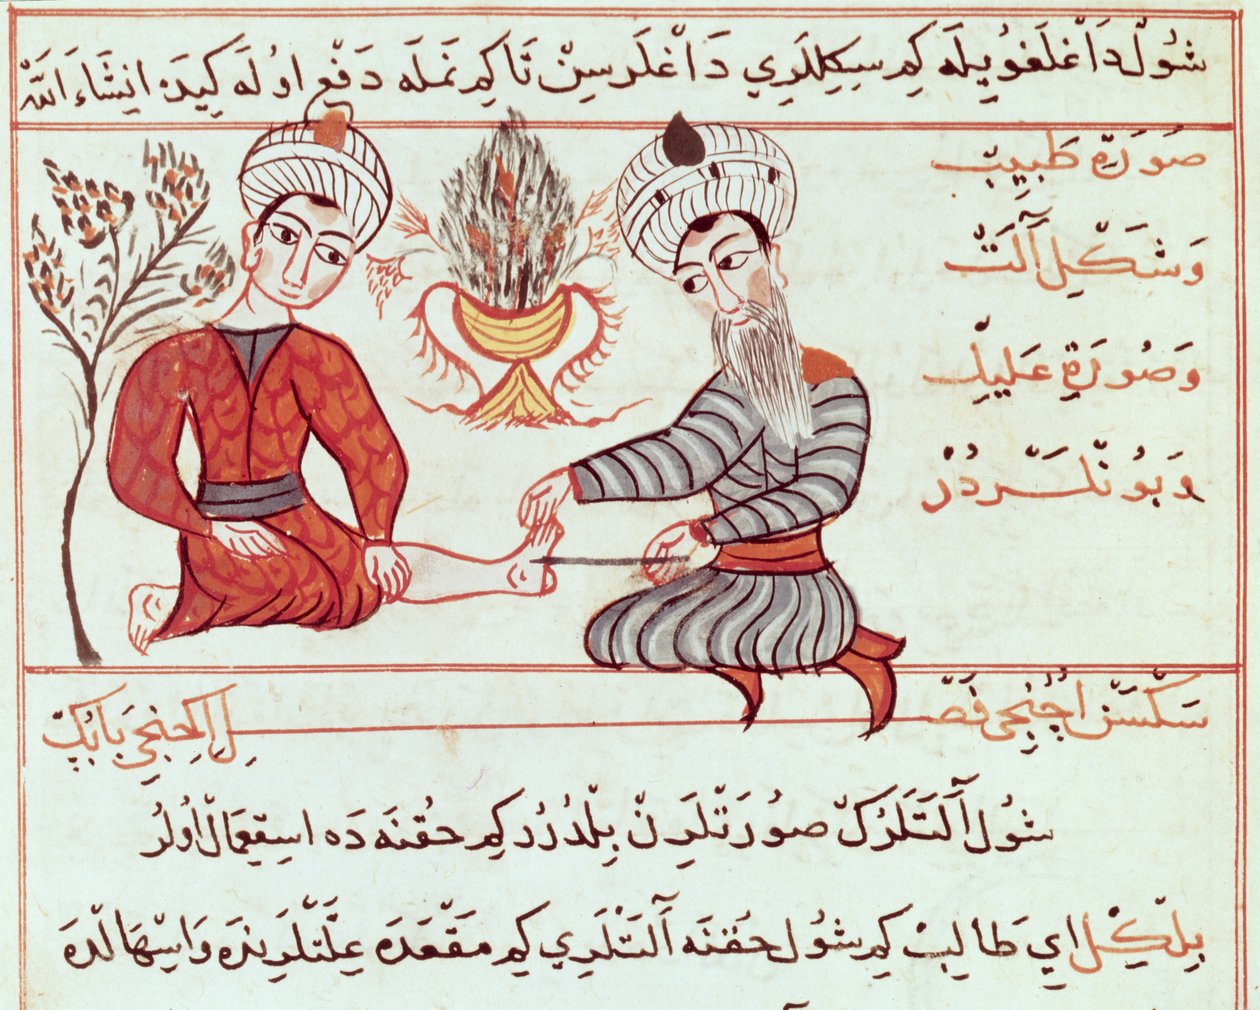 شول داغلغويله كم سيكللري داغلرسن تا كم نمله دفع اوله كيده انشاء الله
صورة طبيب
وشكل آلت
وصورة عليل
وبونلردر
سكسن اچنجي فصل اكنجي بابك
شول آلتلرك صورتلرن بلدرر كم حقنه ده استعمال اولر
بلكل اي طالب كم شول حقنه آلتلري كم مقعده علتلرنده واسهالده